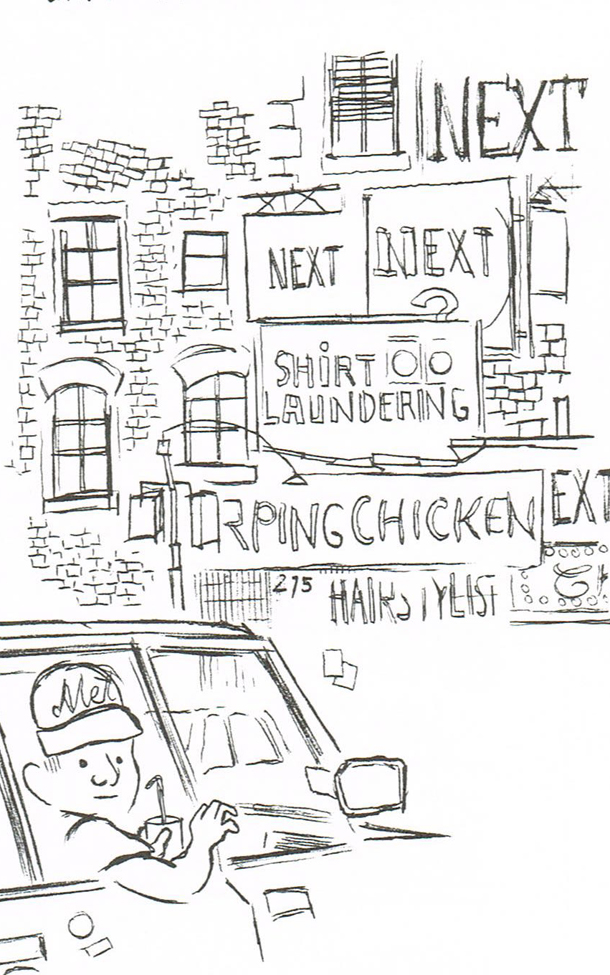 NEXT
NEXT NEXT
SHIRT
LAUNDERING
RPING CHICKEN
EXT
275 HAIRSTYLIST